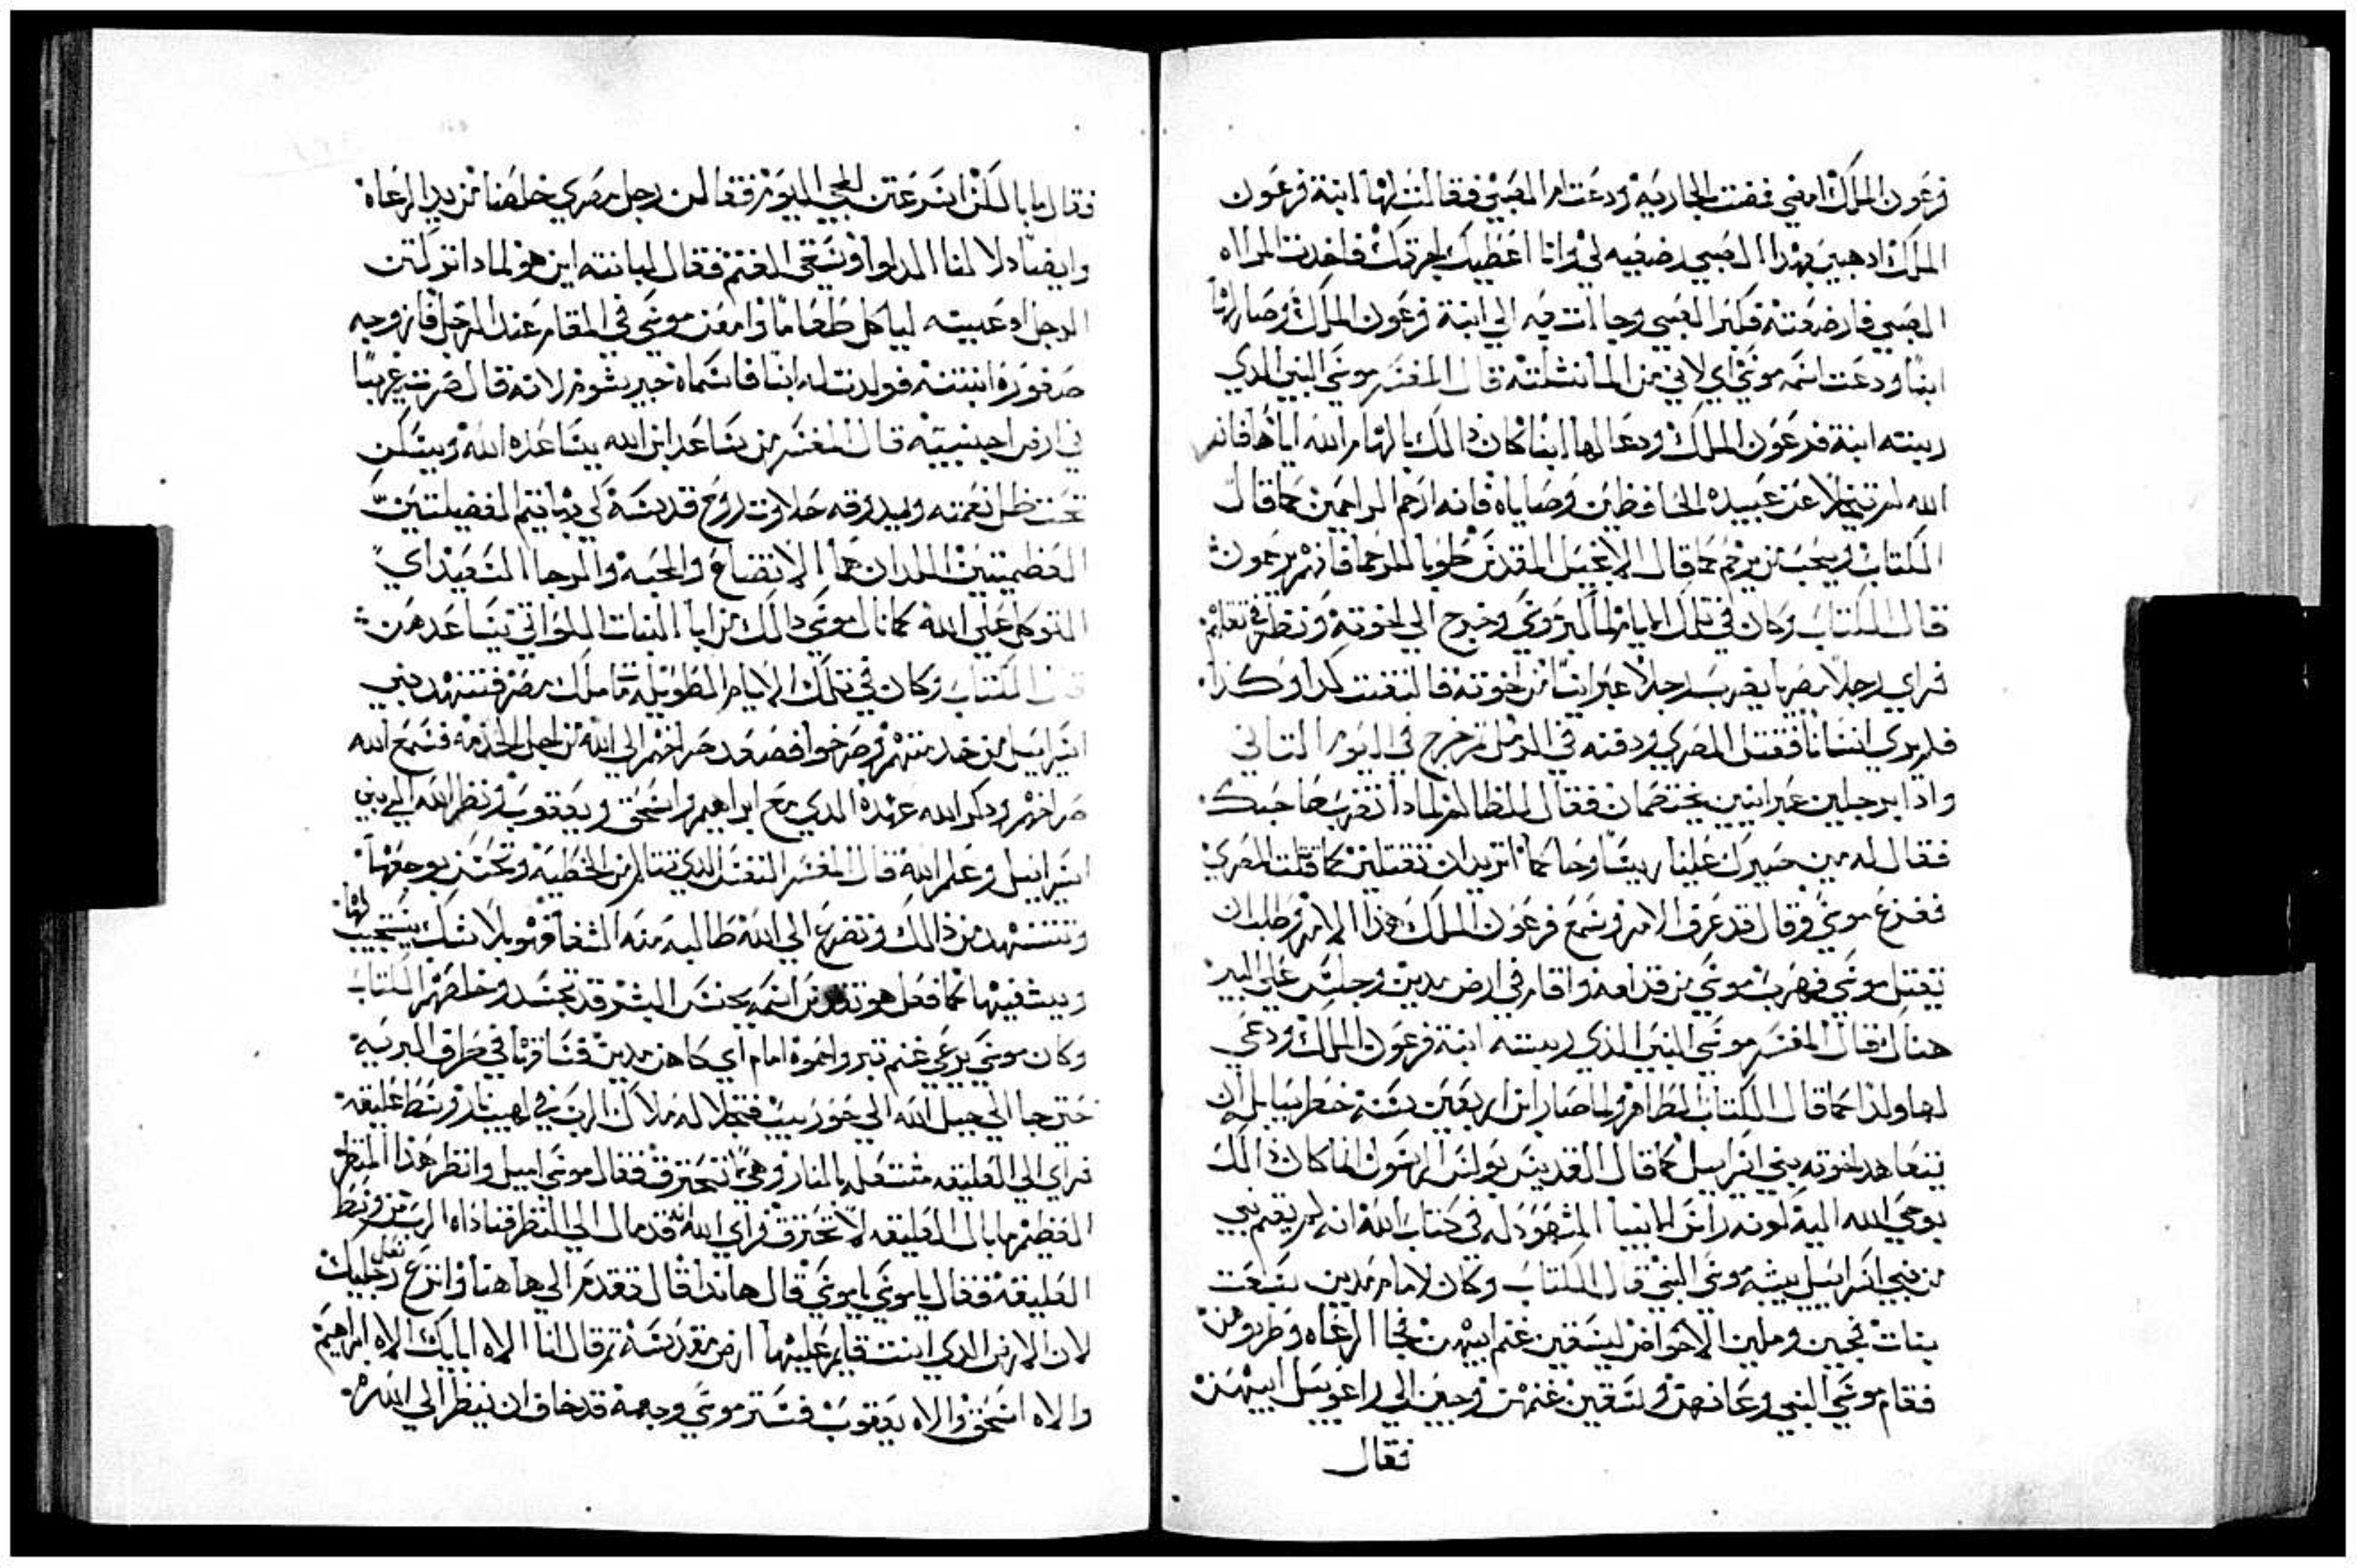 فرعون الملك امضي فمضت الجاريه ودعت ام الصبي فقالت لها ابنة فرعون
الملك ادهبي بهدا الصبي رضعيه لي وانا اعطيك اجرتك فاخدت المراه
الصبي فارضعته فكبر الصبي وجاات به الي ابنة فرعون الملك وصار لها
ابنا ودعت اسمه موسي اي لاني من الما نشلته قال المفسر موسي النبي الدي
ربته ابنة فرعون الملك ودعا لها ابنا كان دالك بالهام الله اياها فان
الله لم يتخلا عن عبيده الحافظين وصاياه فانه ارحم الراحمين كما قال
الكتاب ويحب من يرحم كما قال الانجيل المقدس طوبا للرحما فانهم يرحمون
قال الكتاب وكان في تلك الايام لما كبر موسي وخرج الي اخوته ونظر في تعبهم
فراي رجلا مصريا يضرب رجلا عبرانيا من اخوته فالتفت كدا وكدا
فلم يري انسانا فقتل المصري ودفنه في الرمل ثم خرج في اليوم التاني
وادا برجلين عبرانيين يختصمان فقال للظالم لمادا تضرب صاحبك
فقال له من صيرك علينا ريسا وحاكما اتريد ان تقتلني كما قتلت المصري
ففزع موسي وقال قد عرف الامر وسمع فرعون الملك هدا الامر وطلب ان
يقتل موسي فهرب موسي من قدامه واقام في ارض مدين وجلس علي البير
هناك قال المفسر موسي النبي الدي ربته ابنة فرعون الملك ودعي
لها ولدا كما قال الكتاب الطاهر ولما صار ابن اربعين سنة خطر بباله ان
يتعاهد اخوته بني اسراييل كما قال القديس بولس الرسول انما كان دالك
بوحي الله اليه لكونه راس الانبيا المشهود له في كتاب الله انه لم يقم نبي
من بني اسراييل يشبه موسي النبي قال الكتاب وكان لامام مدين سبعت
بنات تجين وملين الاحواض ليسقين غنم ابيهن فجا الرعاه وطردوهن
فقام موسي النبي وعانهن وسقين غنمهن وجين الي راعوييل ابيهن
فقال
فقال ما بالكن اسرعتن المجي اليوم فقالن رجل مصري خلصنا من يد الرعاه
وايضا دلا لنا الدلوا وسقي الغنم فقال لبانته اين هو لمادا تركتن
الرجل ادعيته لياكل طعاما وامعن موسي في المقام عند الرجل فازوجه
صفوره ابنته فولدت له ابنا فاسماه جيرشوم لانه قال صرت غريبا
في ارض اجنبيه قال المفسر من يساعد ابن الله يساعده الله ويسكن
تحت ظل نعمته ويديقه حلاوت روح قدسه لي يقتني الفضيلتين
العظمتين اللدان هما الاتضاع والمحبه والرجا السعيد اي
التوكل علي الله كما نال موسي دالك من ابا البنات اللواتي يساعدهن
قال الكتاب وكان في تلك الايام الطويله مات ملك مصر فتنهد بني
اسراييل من خدمتهم وصرخوا فصعد صراخهم الي الله من اجل الخدمه فسمع الله
صراخهم ودكر الله عهده الدي مع ابراهيم واسحق ويعقوب ونظر الله الي بني
اسراييل وعلم الله قال المفسر النفس الدي تتالم من الخطيه وتحس بوجعها
وتتنهد من دالك وتضرع الي الله طالبه منه الشفا فهو بلا شك يستجيب لها
ويشفيها كما فعل هو تقدس اسمه بجنس البشر قد تجسد وخلصهم الكتاب
وكان موسي يرعي غنم يترو احموه امام اي كاهن مدين فساقها في طراف البريه
حتي جا الي جبل الله الي حوريب فتجلا له ملاك الرب في لهيب نار وسط عليقه
فراي الي العليقه مشتعله بالنار وهي ما تحترق فقال موسي اميل وانظر هدا المنظر
العظيم ما بال العليقه لا تحترق فراي الله انه قد مال الي النظر فناداه الرب من وسط
العليقه فقال يا موسي يا موسي قال هاندا قال تقدم الي هاهنا وانزع نعل رجليك
لان الارض الدي انت قايم عليها ارض مقدسه ثم قال انا الاه ابايك الاه ابراهيم
والاه اسحق والاه يعقوب فستر موسي وجهه قد خاف ان ينظر الي الله